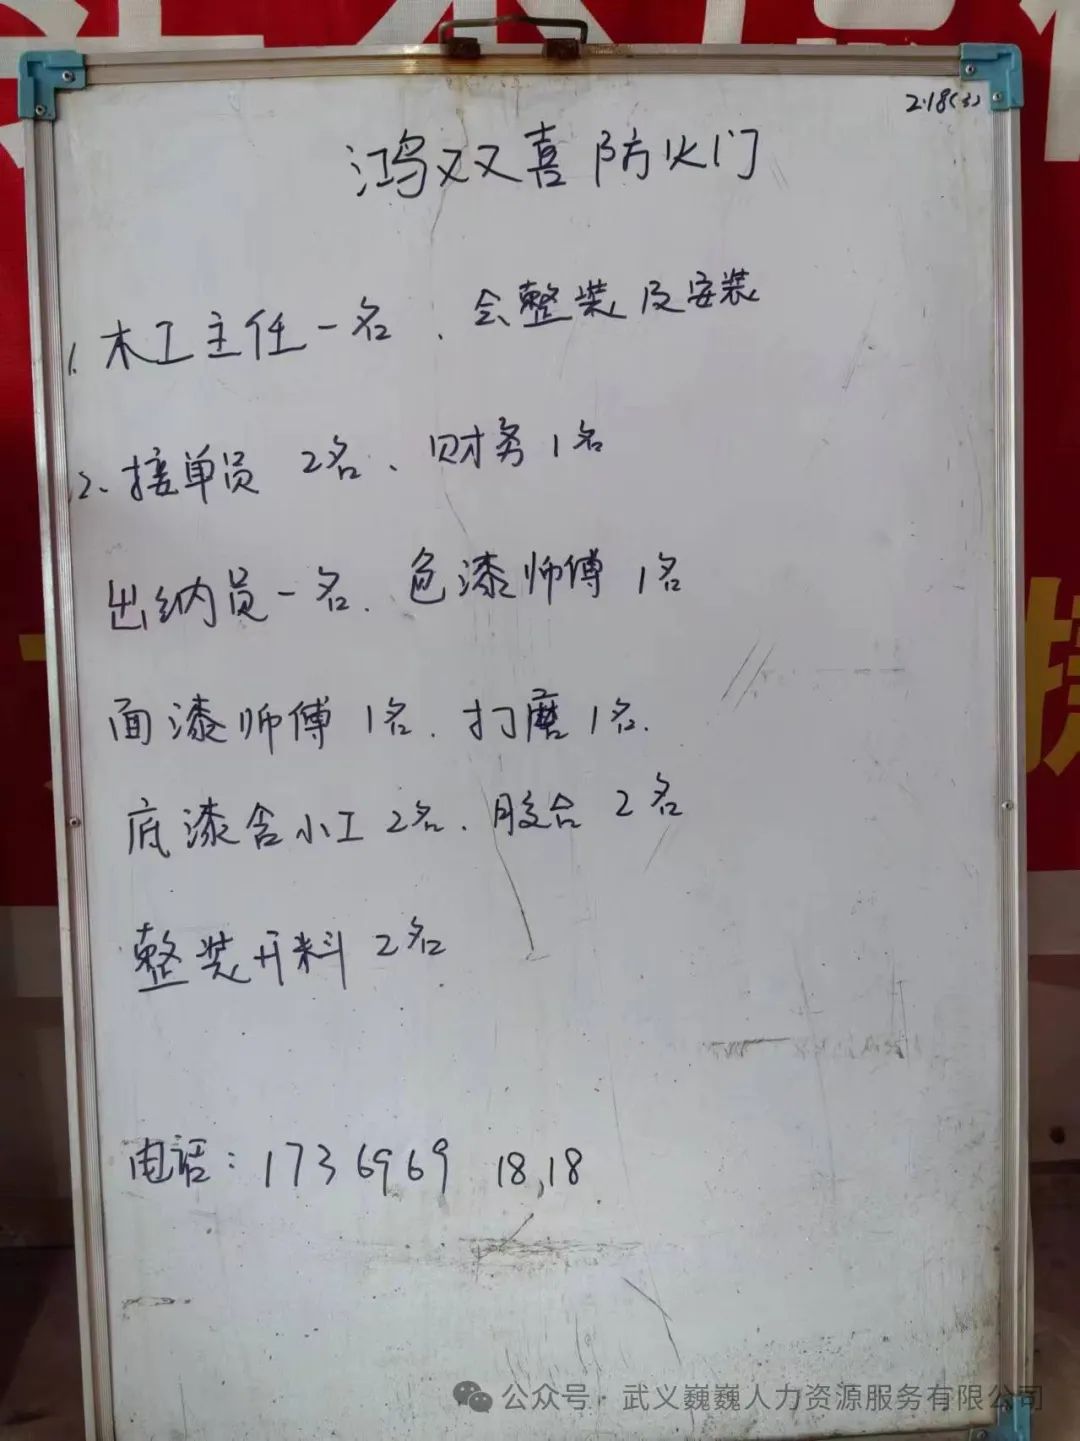 2.18(3)
鸿双喜防火门
1. 木工主任一名、会整装及安装
2、接单员 2名、财务1名
出纳员一名、色漆师傅 1名
面漆师傅 1名、打磨1名.
底漆含小工2名、胶合 2名
整装开料 2名
电话：1736969 18,18
公众号·武义巍巍人力资源服务有限公司